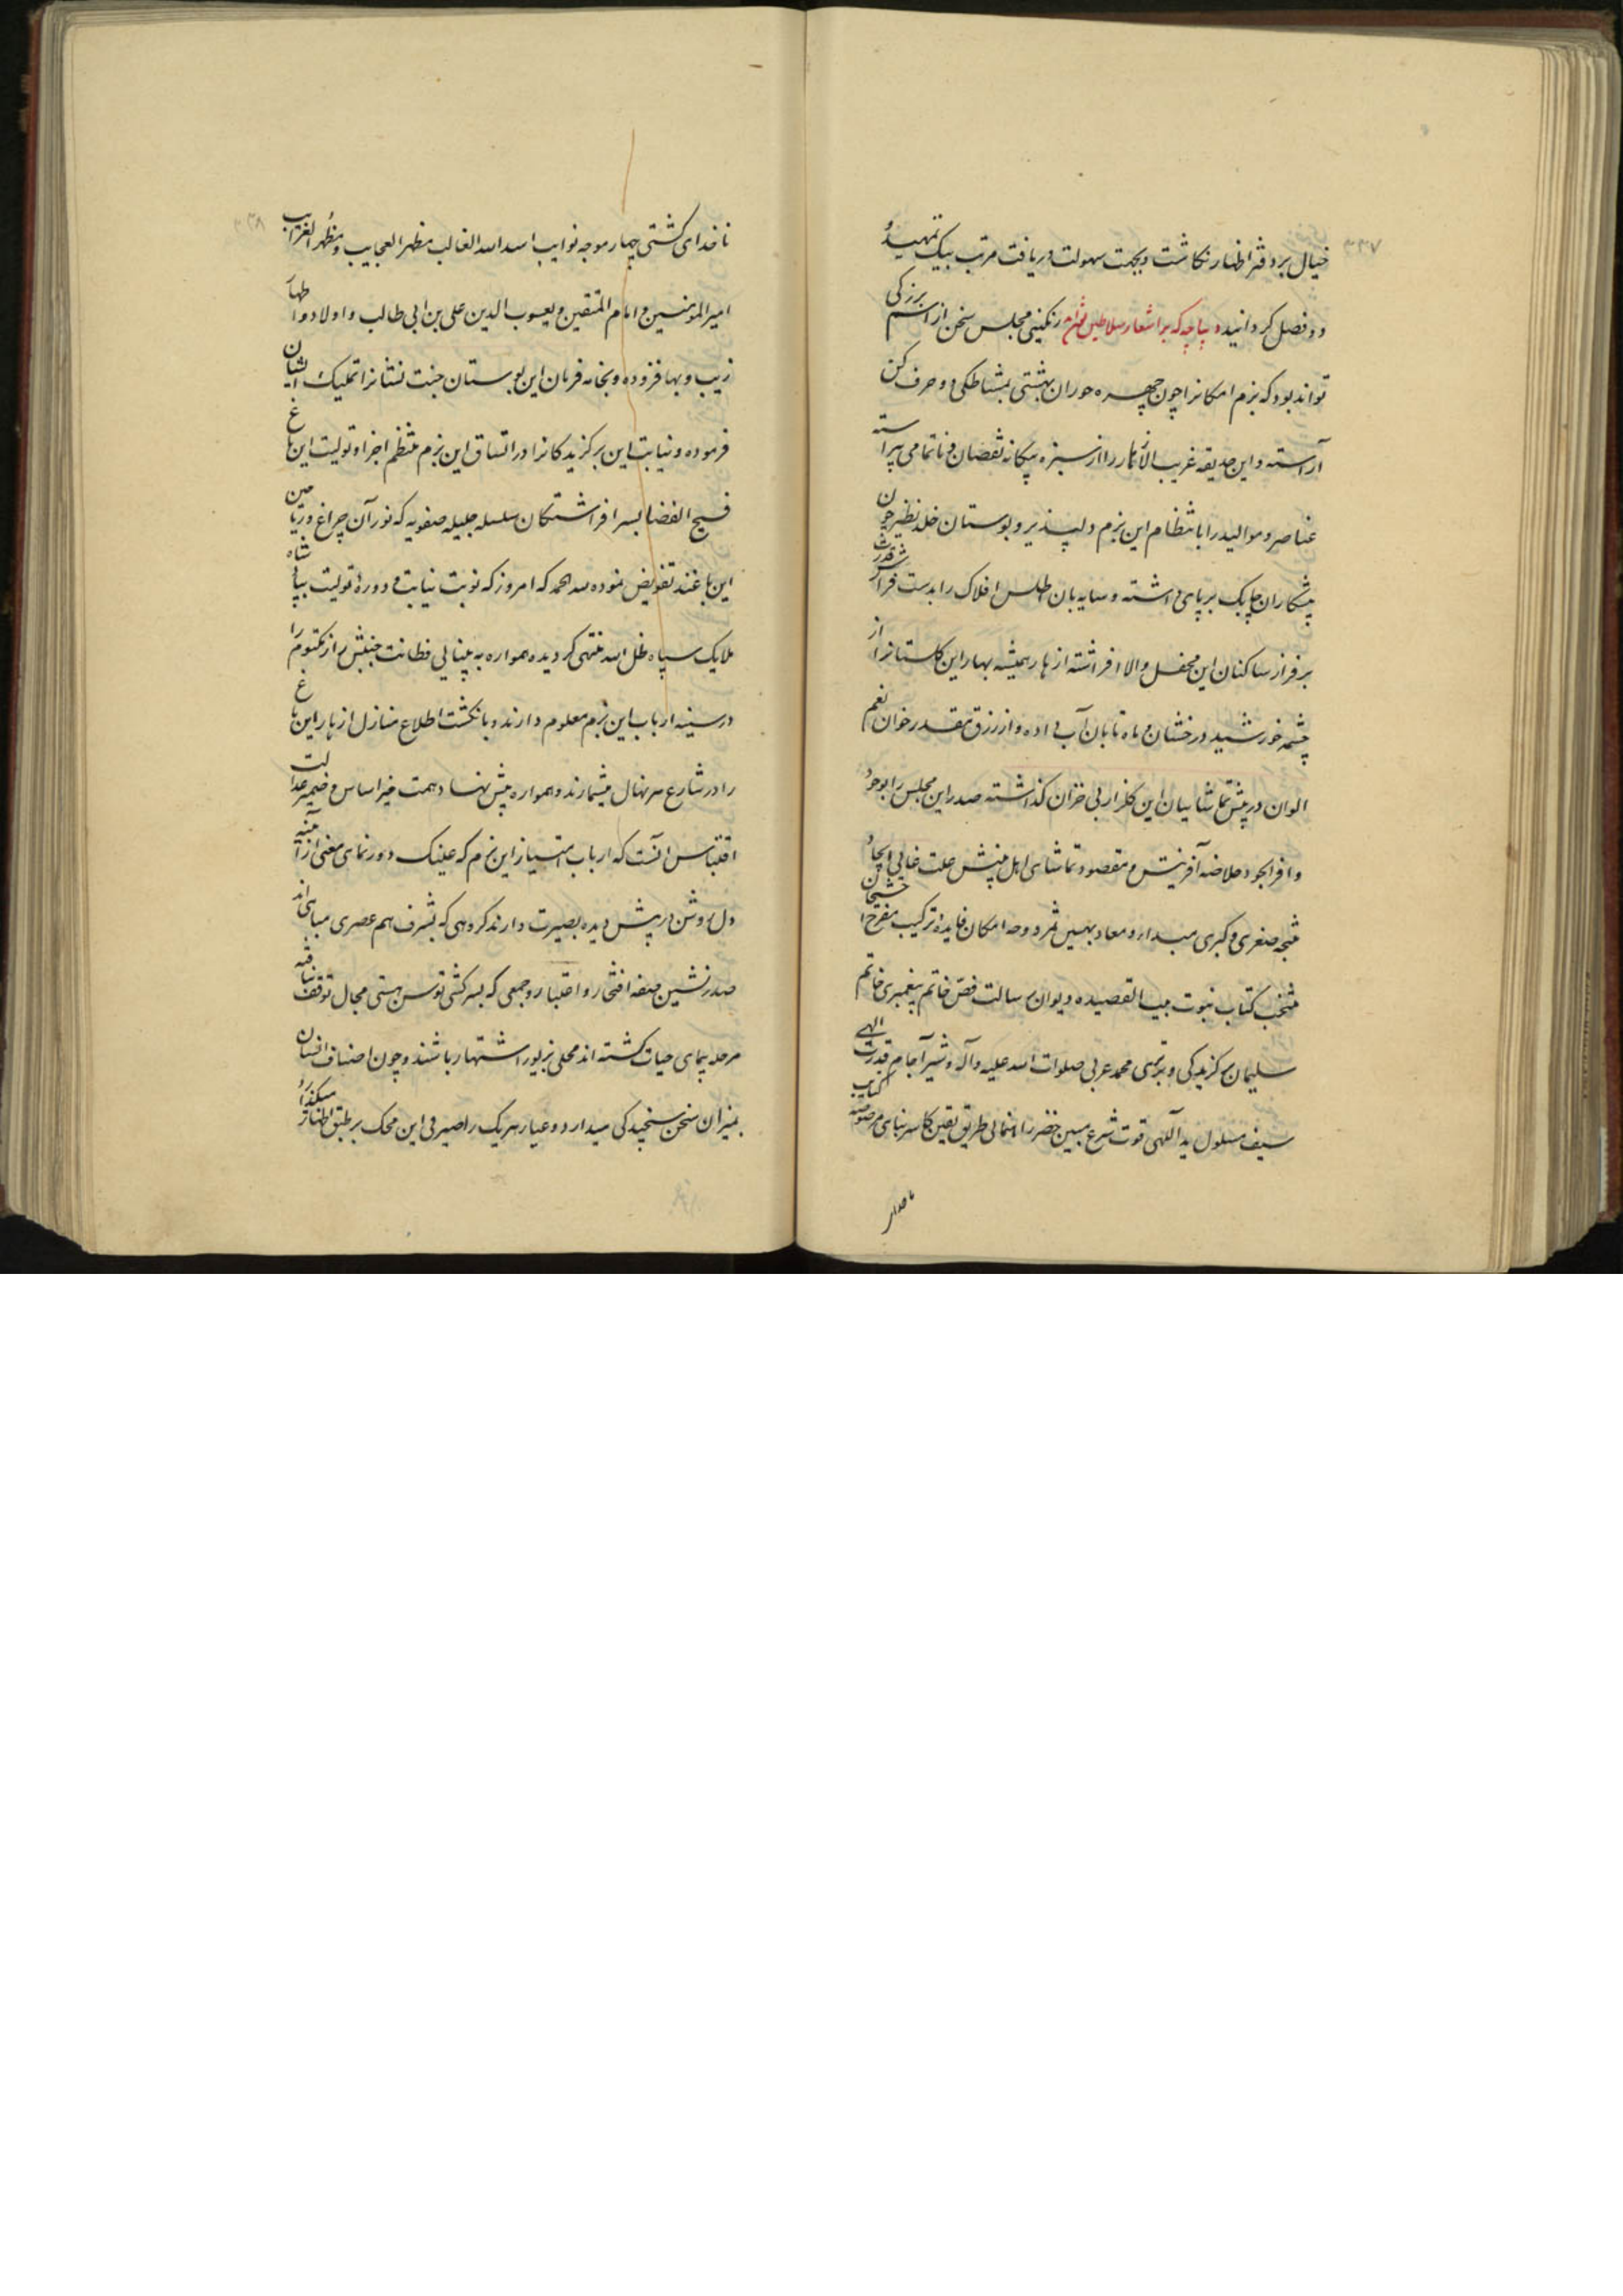 ۳۳۷
خیال بر دفتر اظهار نکاشت و بجهت سهولت دریافت مرتب بیک تمهید و
دو فصل کردانید دیباچه که بر اشعار سلاطین رنکینی مجلس سخن از اسم بزرکی
تواند بود که بزم امکانرا چون چهره حوران بهشتی بمشاطکی دو حرف کن
آراسته و این حدیقه غریب الأثمار را از سبزه بیکانه نقصان و ناتمامی پیراسته
عناصر و موالید را بانتظام این بزم دلپذیر و بوستان خلد نظیر چون
پیشکاران چابک برپای داشته و سایه بان اطلس افلاک را بدست فراش قدرت
بر فراز ساکنان این محفل والا افراشته ازهار همیشه بهار این کلستانرا از
چشمه خورشید درخشان و ماه تابان آب داده و از رزق مقدر خوان نعم
الوان در پیش تماشاییان این کلزار بی خزان کذاشته صدر این مجلس را بوجود
وافر الجود خلاصه آفرینش و مقصود تماشای اهل بینش علت غایی ایجاد
نتیجه صغری و کبری مبدا و معاد بهین ثمر دوحه امکان فایده ترکیب
منتخب کتاب نبوت بیت القصیده دیوان رسالت فص خاتم پیغمبری خاتم
سلیمان برکزیدکی و برتری محمد عربی صلوات الله علیه و آله و شیر آجام قدرت الهی
سیف مسلول ید اللهی قوت شرع مبین خضر راهنمای طریق یقین کاسر بنای
ناخدای
۳۳۸
ناخدای کشتی چهار موجه نوایب اسد الله الغالب مظهر العجایب و مظهر الغرایب
امیر المؤمنین و امام المتقین و یعسوب الدین علی بن ابی طالب و اولاد
زیب و بها افزوده و بخامه فرمان این بوستان جنت نشانرا تملیک ایشان
فرموده و نیابت این برکزیدکانرا در اتساق این بزم منتظم اجزا و تولیت این باغ
فسیح الفضا بسرافراشتکان سلسله جلیله صفویه که نور آن چراغ و ریاحین
این باغند تفویض نموده لله الحمد که امروز که نوبت نیابت و دوره تولیت بپادشاه
ملایک سپاه ظل الله منتهی کردیده همواره به بینایی فطانت جنبش راز مکتوم را
در سینه ارباب این بزم معلوم دارند و بانکشت اطلاع منازل ازهار این باغ
را در شارع هر نهال میشمارند و همواره پیش نهاد همت خیر اساس و ضمیر عدالت
اقتباس آنست که ارباب امتیاز این بزم که عینک دورنمای معنی از آینه
دل روشن در پیش دیده بصیرت دارند کروهی که بشرف هم عصری مباهی اند
صدرنشین صفه افتخار و اعتبار و جمعی که بسرکشی توسن هستی مجال توقف نیافته
مرحله پیمای حیات کشته اند محلی بزیور اشتهار باشند و چون اصناف انسان را
بمیزان سخن سنجیدکی میدارد و عیار هر یک را صیرفی این محک بر طبق اظهار میکذارد